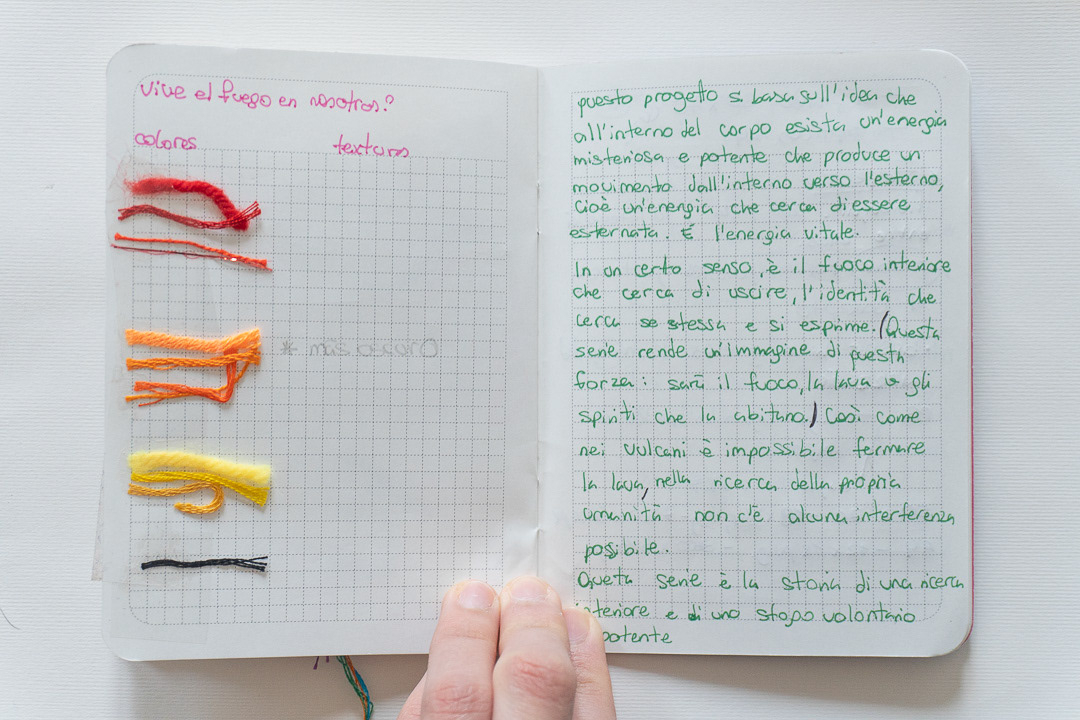 vive el fuego en nosotros?
colores textura
questo progetto si basa sull'idea che
all'interno del corpo esista un'energia
misteriosa e potente che produce un
movimento dall'interno verso l'esterno,
cioè un'energia che cerca di essere
esternata. É l'energia vitale.
In un certo senso, è il fuoco interiore
che cerca di uscire, l'identità che
cerca se stessa e si esprime. (Questa
serie rende un'immagine di questa
forza: sarà il fuoco, la lava e gli
spiriti che la abitano.) Così come
nei vulcani è impossibile fermare
la lava, nella ricerca della propria
umanità non c'è alcuna interferenza
possibile.
Queta serie è la storia di una ricerca
interiore e di uno stopo volontario
potente